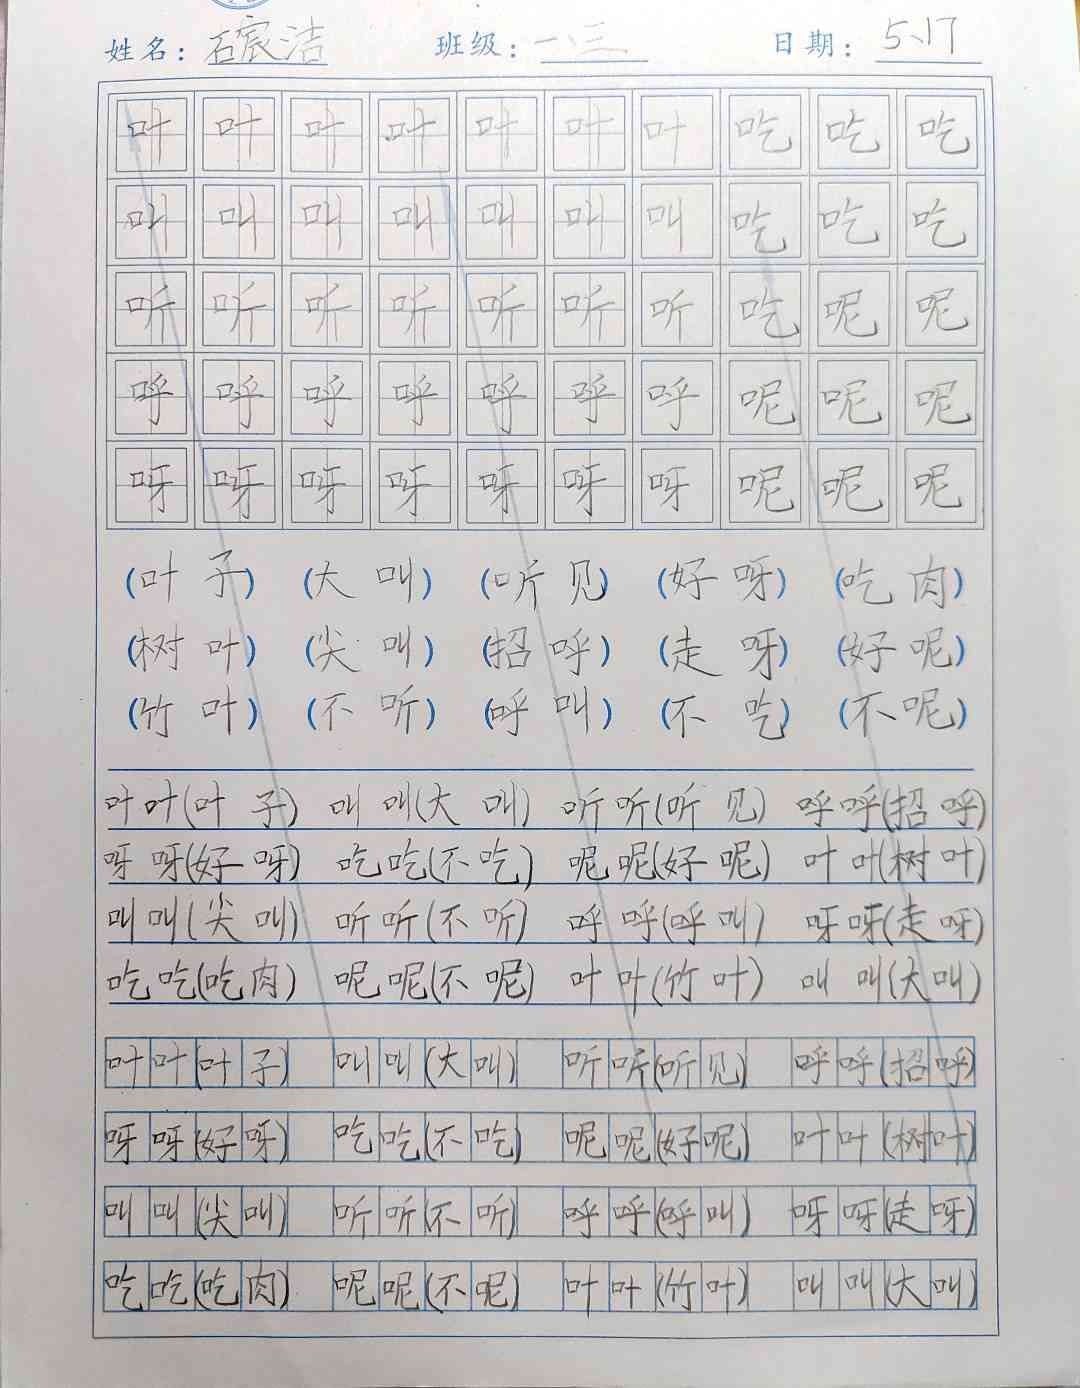 姓名：石宸洁 班级：一、三 日期：5、17
叶叶叶叶叶叶叶吃吃吃
叫叫叫叫叫叫叫吃吃吃
听听听听听听听吃呢呢
呼呼呼呼呼呼呼呢呢呢
呀呀呀呀呀呀呀呢呢呢
(叶子) (大叫) (听见) (好呀) (吃肉)
(树叶) (尖叫) (招呼) (走呀) (好呢)
(竹叶) (不听) (呼叫) (不吃) (不呢)
叶叶(叶子) 叫叫(大叫) 听听(听见) 呼呼(招呼)
呀呀(好呀) 吃吃(不吃) 呢呢(好呢) 叶叶(树叶)
叫叫(尖叫) 听听(不听) 呼呼(呼叫) 呀呀(走呀)
吃吃(吃肉) 呢呢(不呢) 叶叶(竹叶) 叫叫(大叫)
叶叶(叶子) 叫叫(大叫) 听听(听见) 呼呼(招呼)
呀呀(好呀) 吃吃(不吃) 呢呢(好呢) 叶叶(树叶)
叫叫(尖叫) 听听(不听) 呼呼(呼叫) 呀呀(走呀)
吃吃(吃肉) 呢呢(不呢) 叶叶(竹叶) 叫叫(大叫)